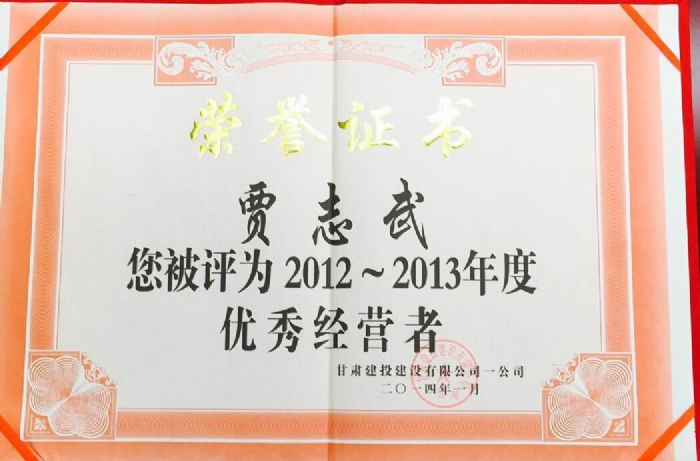 荣誉证书
贾志武
您被评为2012~2013年度
优秀经营者
甘肃建投建设有限公司一公司
二〇一四年一月